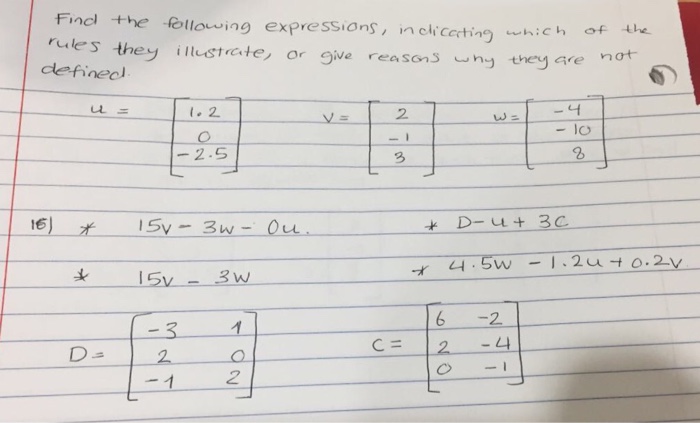 Find the following expressions, indicating which of the
rules they illustrate, or give reasons why they are not
defined.
u = [1.2 0 -2.5] v = [2 -1 3] w = [-4 -10 8]
16) * 15v - 3w - 0u. * D-u + 3C
* 15v - 3w * 4.5w - 1.2u + 0.2v
D = [-3 1 2 0 -1 2] C = [6 -2 2 -4 0 -1]